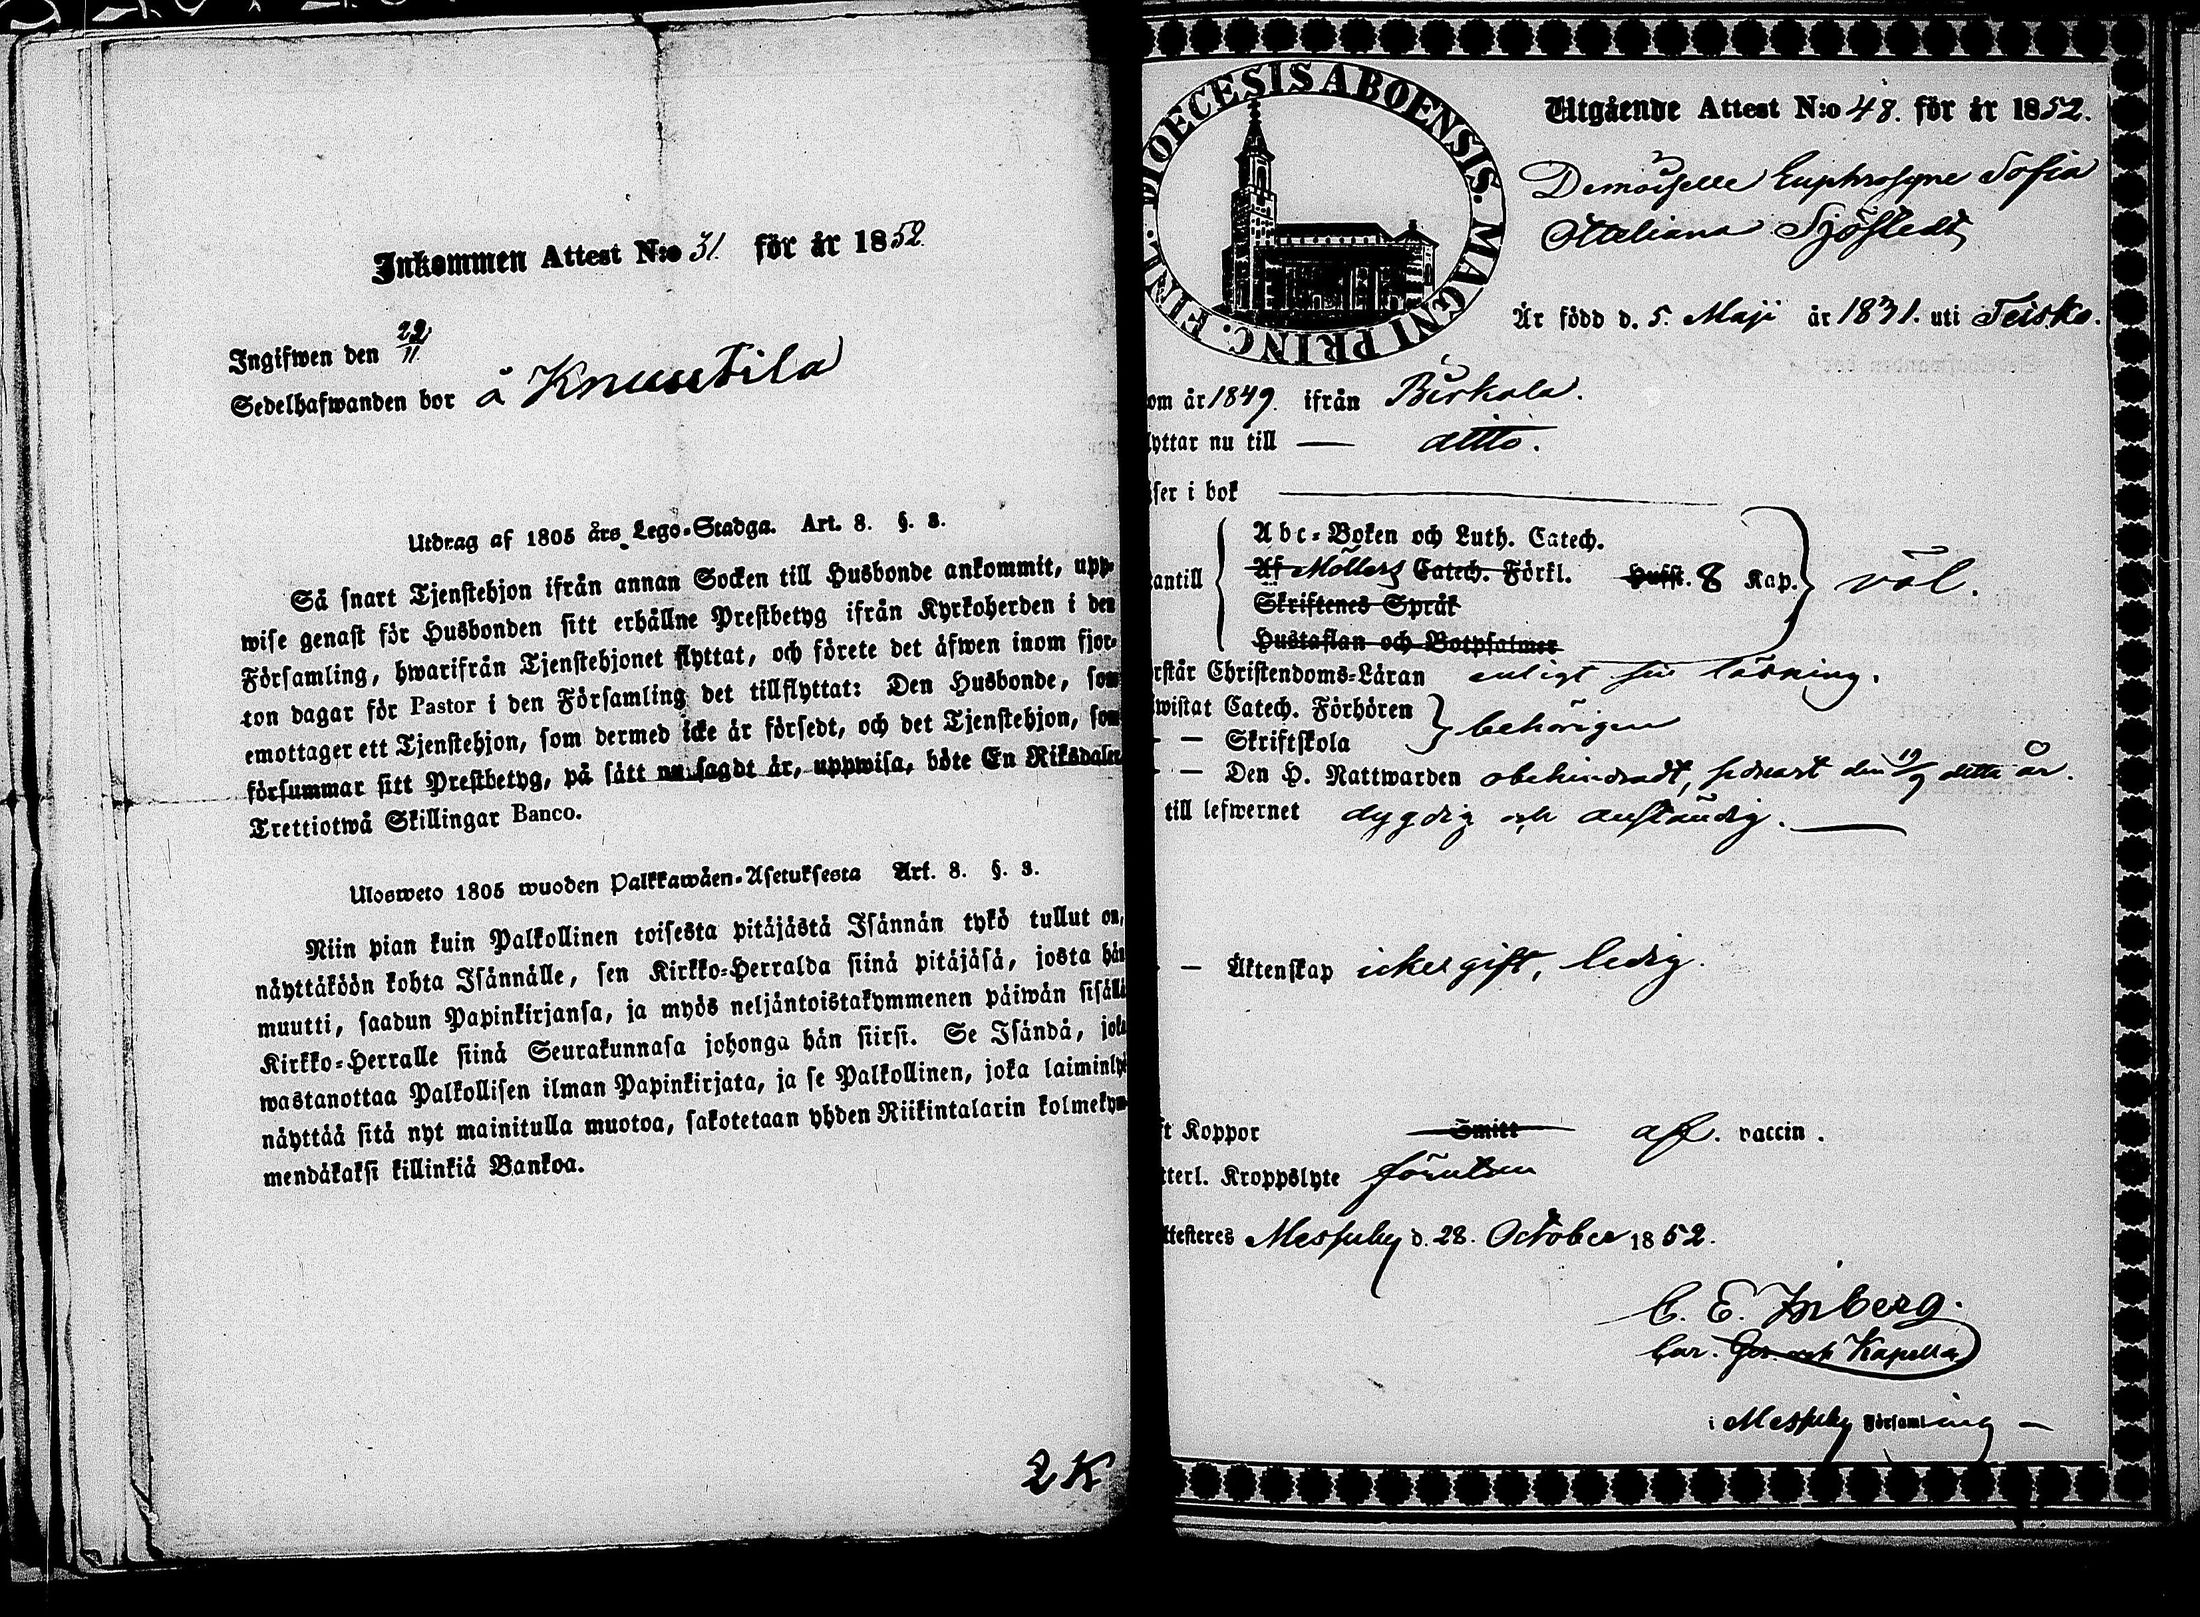 Inkommen Attest N:o 31. för år 1852
Ingifwen den 22/11
Sedelhafwanden bor å Knuutila
Utdrag af 1805 års Lego-Stadga. Art. 8. §. 3.
Så snart Tjenstehjon ifrån annan Socken till Husbonde ankommit, upp-
wise genast för Husbonden sitt erhållne Prestbetyg ifrån Kyrkoherden i den
Församling, hwarifrån Tjenstehjonet flyttat, och förete det äfwen inom fjor-
ton dagar för Pastor i den Församling det tillflyttat: Den Husbonde, som
emottager ett Tjenstehjon, som dermed icke är försedt, och det Tjenstehjon, som
försummar sitt Prestbetyg, på sätt nu sagdt är, uppwisa, böte En Riksdaler
Trettiotwå Skillingar Banco.
Ulosweto 1805 wuoden Palkkawäen-Asetuksesta Art. 8. §. 3.
Niin pian kuin Palkollinen toisesta pitäjästä Isännän tykö tullut on,
näyttäköön kohta Isännälle, sen Kirkko-Herralda siinä pitäjäsä, josta hän
muutti, saadun Papinkirjansa, ja myös neljäntoistakymmenen päiwän sisällä
Kirkko-Herralle siinä Seurakunnasa johonga hän siirsi. Se Isändä, joka
wastanottaa Palkollisen ilman Papinkirjata, ja se Palkollinen, joka laiminlyö
näyttää sitä nyt mainitulla muotoa, sakotetaan yhden Riikintalarin kolmekym-
mendäkaksi killinkiä Bankoa.
2 K
DIOECESIS ABOENSIS. MAGNI PRINC. FINL.
Utgående Attest N:o 48. för år 1852.
Demoiselle Euphrosyne Sofia
Italiana Sjöstedt
Är född d. 5. Maji år 1831. uti Teisko.
om år 1849. ifrån Birkala.
lyttar nu till — ditto.
äser i bok
Abc-Boken och Luth. Catech.
Af Möllers Catech. Förkl. Hufst. 8 Kap.
antill väl.
Skriftenes Språk
Hustaflan och Botpsalmer
rstår Christendoms-Läran enligt sin läsning.
wistat Catech. Förhören
behörigen
— — Skriftskola
— — Den H. Nattwarden obehindradt, senast den 19/9 detta år.
till lefwernet dygdig och anständig.
— — Äktenskap icke gift, ledig.
ft Koppor Smitt af. vaccin.
tterl. Kroppslyte förutan
ttesteres Messuby d. 28. October 1852.
C. E. Inberg.
i Messuby Församling